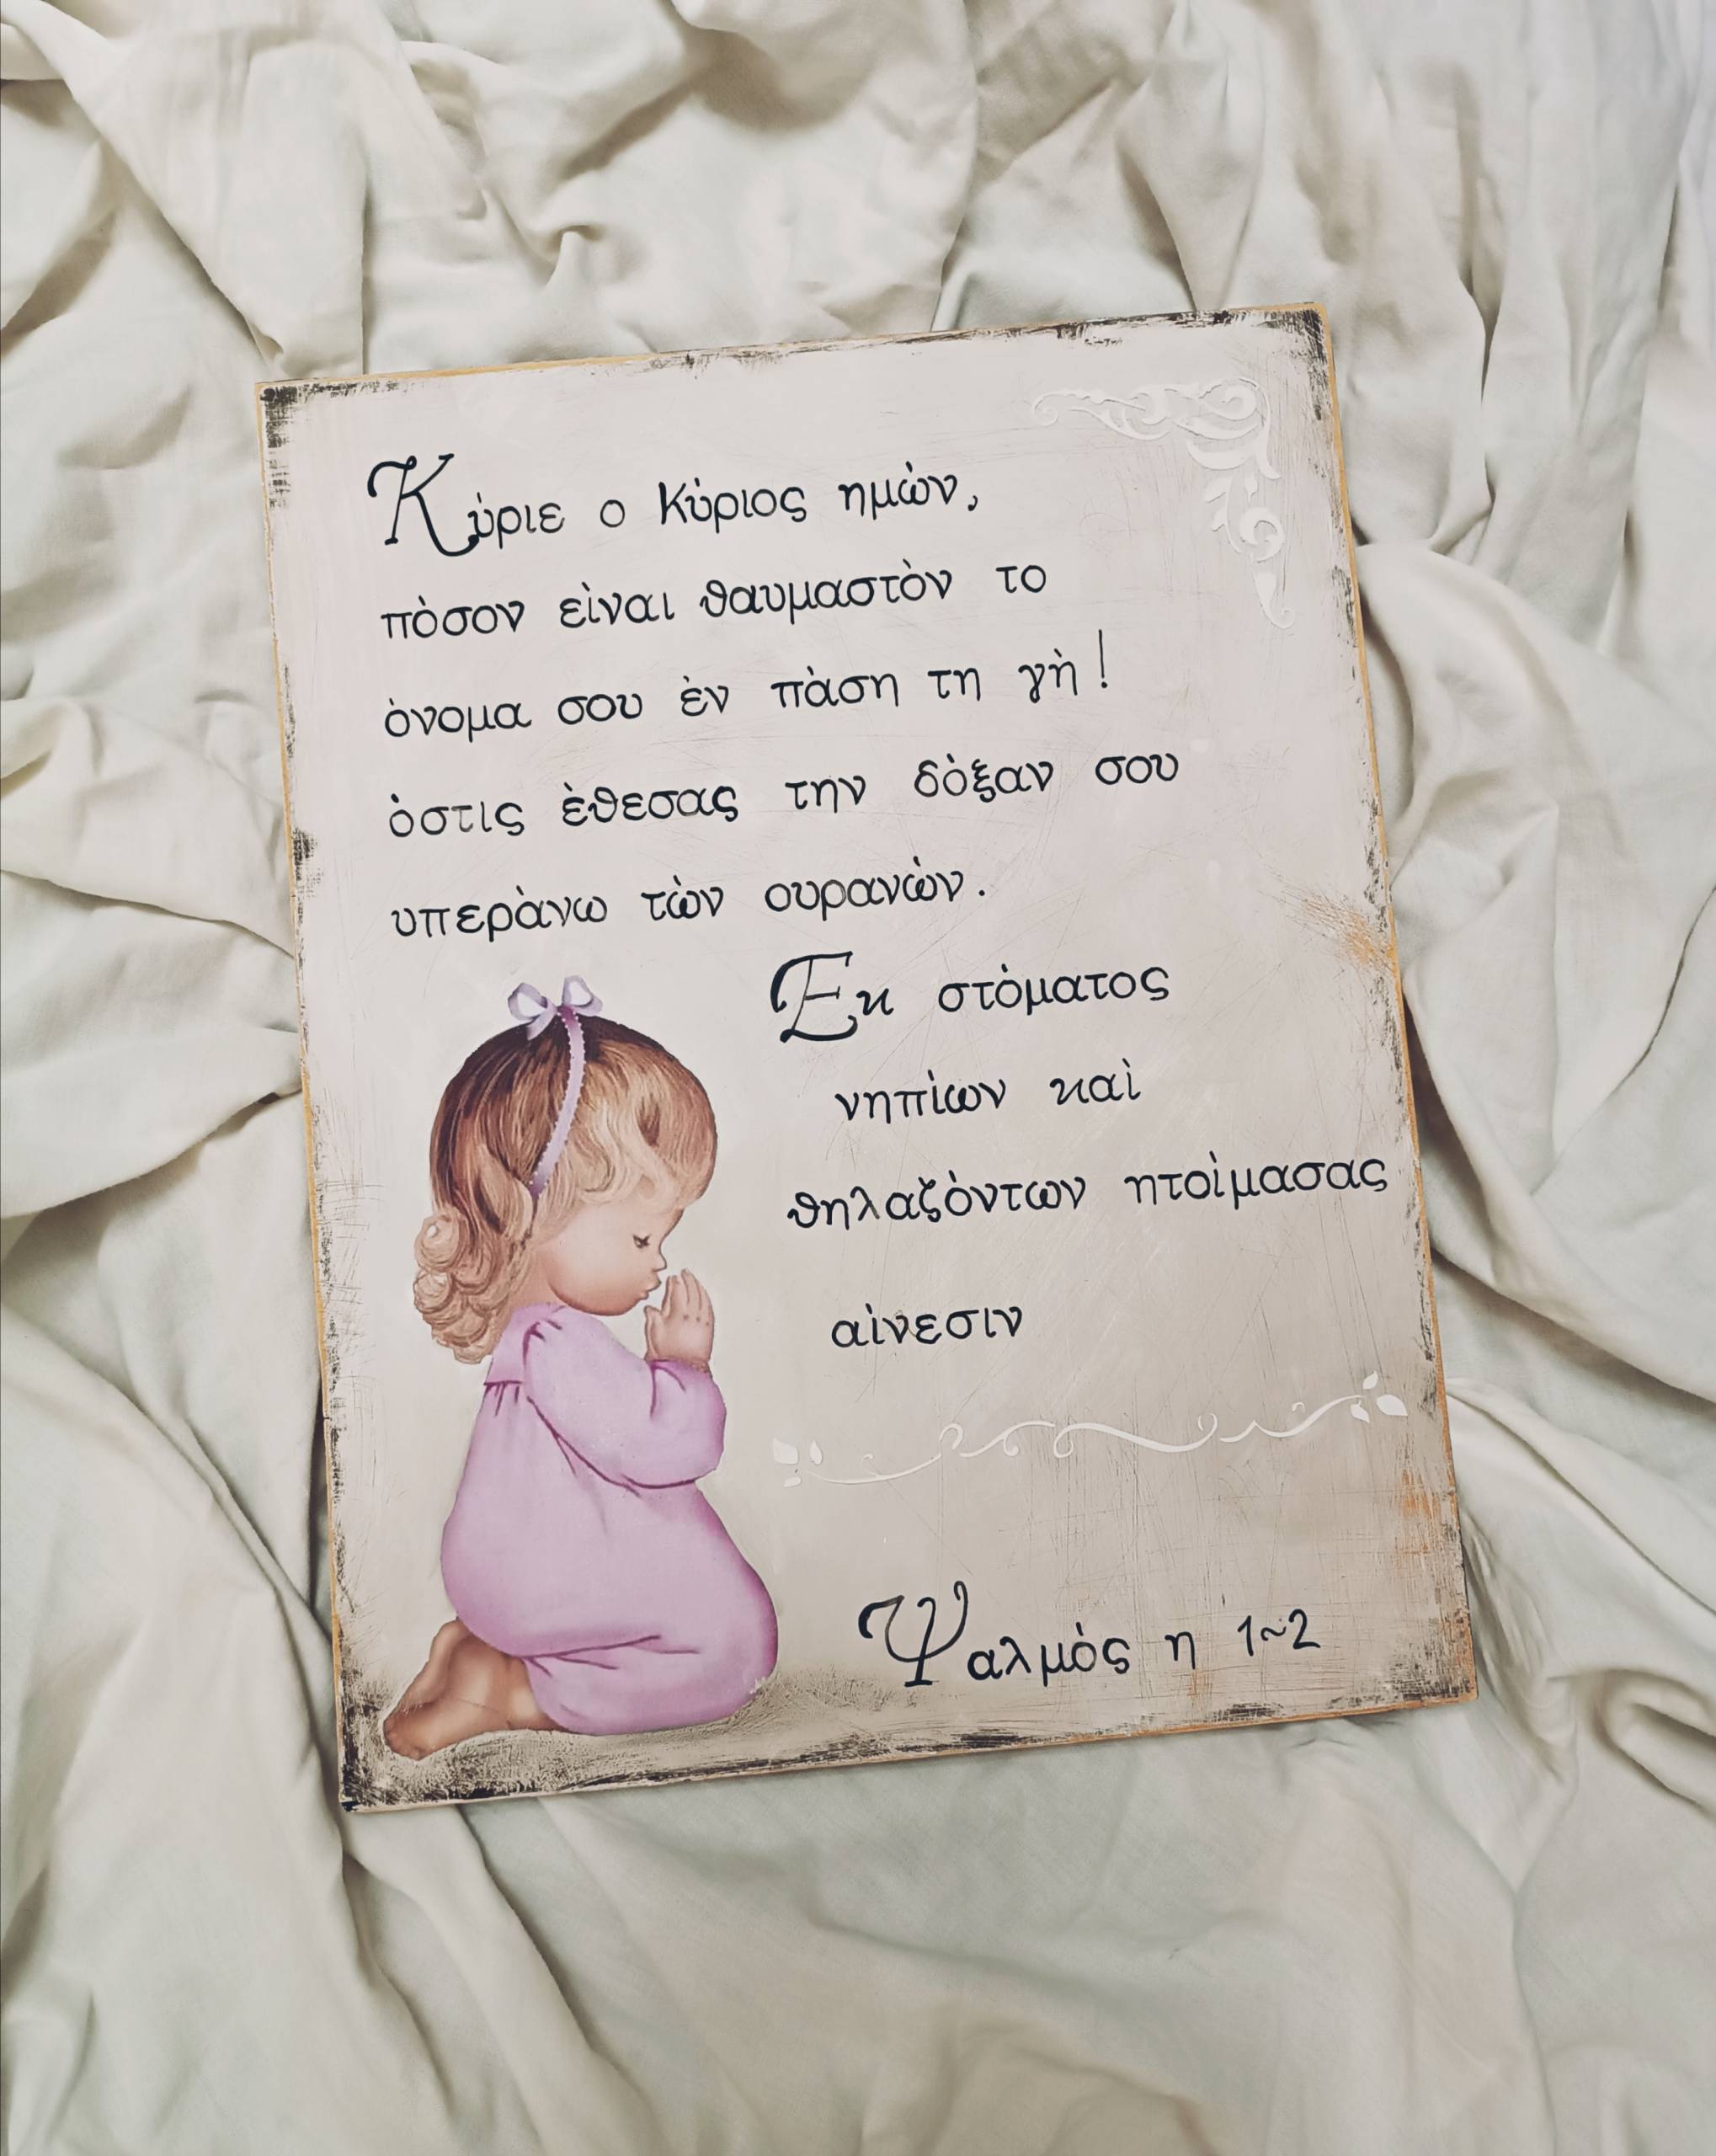 Κὺριε ο Κὺριος ημὼν,
πὸσον εὶναι θαυμαστὸν το
ὸνομα σου ὲν πὰση τη γὴ!
ὸστις ὲθεσας την δὸξαν σου
υπερὰνω τὼν ουρανὼν.
Εκ στὸματος
νηπὶων καὶ
θηλαζὸντων ητοὶμασας
αὶνεσιν
Ψαλμὸς η 1~2